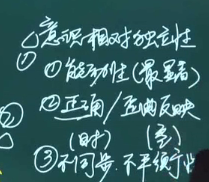 △意识相对独立性
① ①能动性(最显著)
② ②正确/歪曲反映
(时) (空)
③不同步.不平衡性